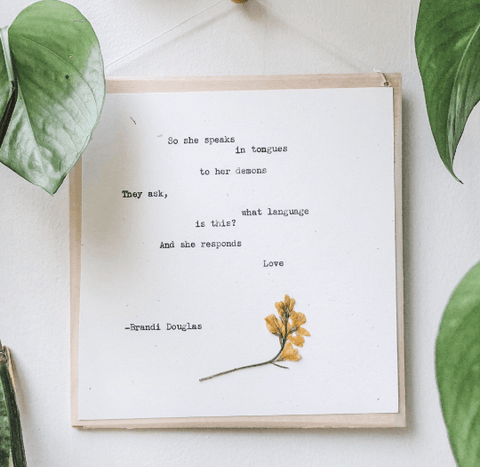 So she speaks
in tongues
to her demons
They ask,
what language
is this?
And she responds
Love
-Brandi Douglas